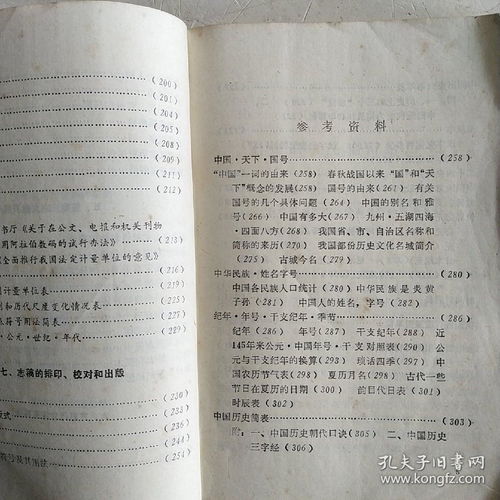 (200)
(201)
(204)
(205)
(208)
(209)
(211)
(212)
书厅《关于在公文、电报和机关刊物
用阿拉伯数码的试行办法》……(213)
全面推行我国法定计量单位的意见》
……(216)
计量单位表……(219)
和历代尺度变化情况表……(221)
符号用法简表……(224)
·公元·世纪·年代……(229)
七、志稿的排印、校对和出版
……(230)
式……(234)
……(244)
符号及其用法……(254)
参考资料
中国·天下·国号……(258)
“中国”一词的由来(258) 春秋战国以来“国”和“天
下”概念的发展(258) 国号的由来(261) 有关
国号的几个具体问题(264) 中国的别名和雅
号(266) 中国有多大(267) 九州·五湖四海
·四面八方(268) 我国省、市、自治区名称和
简称的来历(271) 我国都份历史文化名城简介
(275) 古城今名(279)
中华民族·姓名字号……(280)
中国各民族人口统计(280) 中华民族是炎黄
子孙(281) 中国人的姓名,字号(282)
纪年·年号·干支纪年·季节……(286)
纪年(286) 年号(287) 干支纪年(288) 近
145年来公元·中国年号·干支对照表(290) 公
元与干支纪年的换算(293) 琐话四季(297) 中
国农历节气表(298) 夏历月名(298) 古代一些
节日在夏历的日期(300) 韵目代日表(301)
时辰表(302)
中国历史简表……(303)
附:一、中国历史朝代口诀(305) 二、中国历史
三字经(306)
孔夫子旧书网
www.kongfz.com